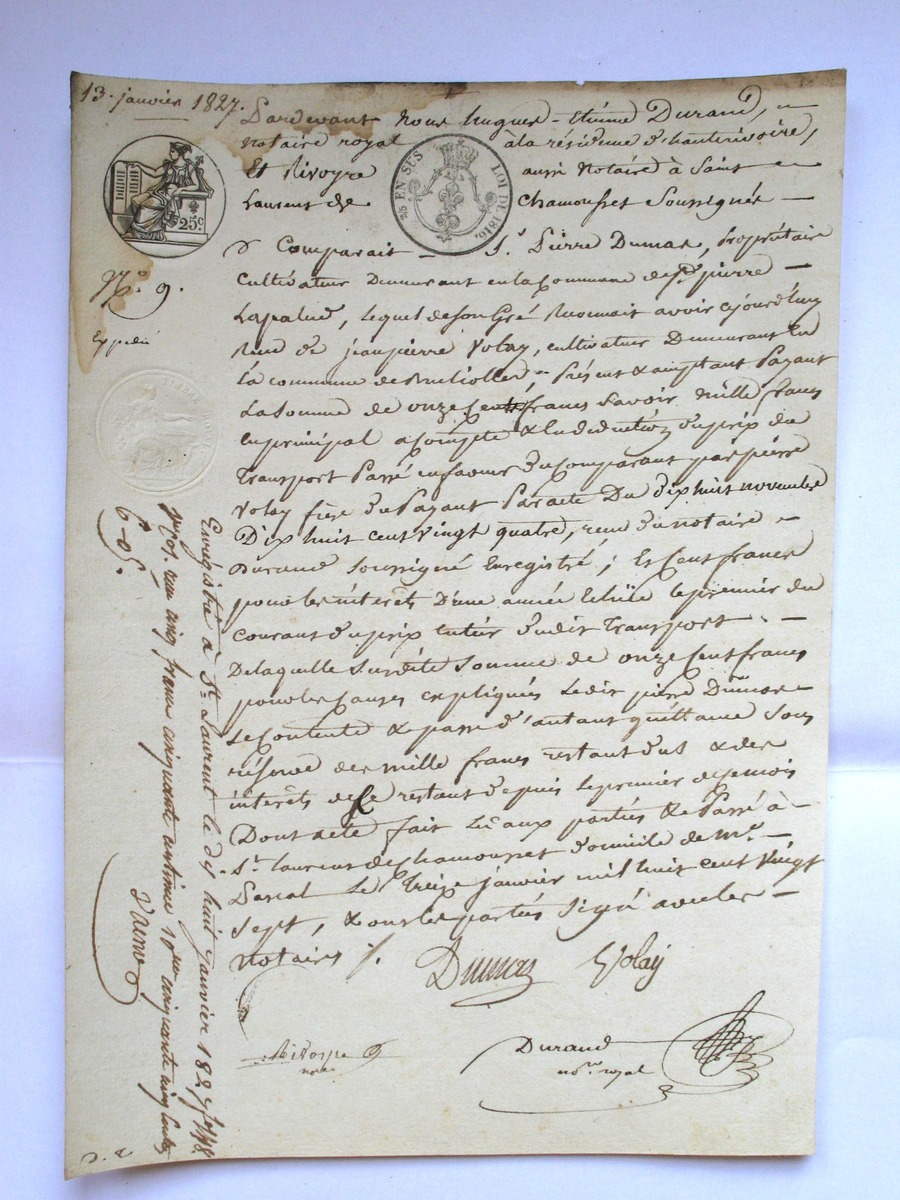 13. janvier 1827.
Pardevant nous hugues-étiénne Durand,
notaire royal à la résidence d'hauterivoire,
Et Rivoyre aussi Notaire à Saint
Laurent de Chamousset Soussignés
25 EN SUS LOI DE 1816.
25c
Comparait S.r Pierre Dumas, Propriétaire
N.o 9.
Cultivateur Demeurant en la Commune de St pierre
Lapalud, lequel de son Gré Reconnait avoir cejourd'huy
Expédié
Reçu de jeanpierre Volay, cultivateur Demeurant En
la commune de Brulliolles, Présent & acceptant Payant
la Somme de onze Cent francs Savoir, mille francs
en principal acompte & en déduction du prix du
Transport Passé en faveur du Comparant par pierre
Volay fière du Payant Par acte Du dix huit novembre
Dix huit cent vingt quatre, reçu du notaire
Durand Soussigné Enregistré; Et Cent francs
pour les intérêts D'une année Echüe le premier du
Courant du prix Entier dudit Transport.
De laquelle Susdite Somme de onze Cent francs
pour les Causes expliqués Ledit pierre Dumas
Se Contente & passe d'autant quittance Sous
réserve des mille francs restant dus & des
intérêts de Ce restant depuis le premier de ce mois
Dont acte fait Lû aux parties & Passé à
St. laurent de Chamousset Domicile de Me.
Pascal Le Treize janvier mil huit cent Vingt
Sept, & ont les parties Signé avec les
notaires /.
Dumas Volay
Rivoyre
nore
Durand
nore. royal
Enrégistré à St. Laurent le dix huit janvier 1827
reçu cinq francs cinquante centimes 10me cinquante cinq centes
6f-05c.
D. R